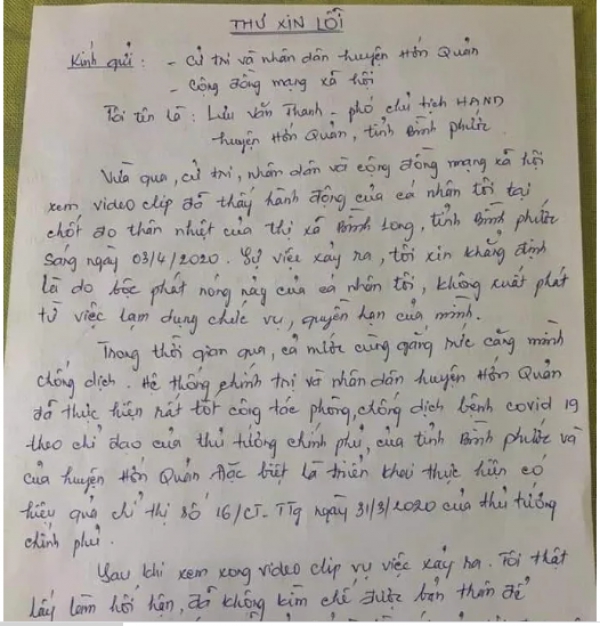 THƯ XIN LỖI
Kính gửi: - Cử tri và nhân dân huyện Hớn Quản
- Cộng đồng mạng xã hội
Tôi tên là: Lưu Văn Thanh - phó chủ tịch HĐND
huyện Hớn Quản, tỉnh Bình phước
Vừa qua, cử tri, nhân dân và cộng đồng mạng xã hội
xem video clip đã thấy hành động của cá nhân tôi tại
chốt đo thân nhiệt của thị xã Bình Long, tỉnh Bình phước
Sáng ngày 03/4/2020. Sự việc xảy ra, tôi xin khẳng định
là do bộc phát nóng nảy của cá nhân tôi, không xuất phát
từ việc lạm dụng chức vụ, quyền hạn của mình.
Trong thời gian qua, cả nước cùng gắng sức căng mình
chống dịch. Hệ thống chính trị và nhân dân huyện Hớn Quản
đã thực hiện rất tốt công tác phòng, chống dịch bệnh covid 19
theo chỉ đạo của thủ tướng chính phủ, của tỉnh Bình phước và
của huyện Hớn Quản. Đặc biệt là triển khai thực hiện có
hiệu quả chỉ thị số 16/CT-TTg ngày 31/3/2020 của thủ tướng
chính phủ.
Sau khi xem xong video clip vụ việc xảy ra. Tôi thật
lấy làm hối hận, đã không kìm chế được bản thân để